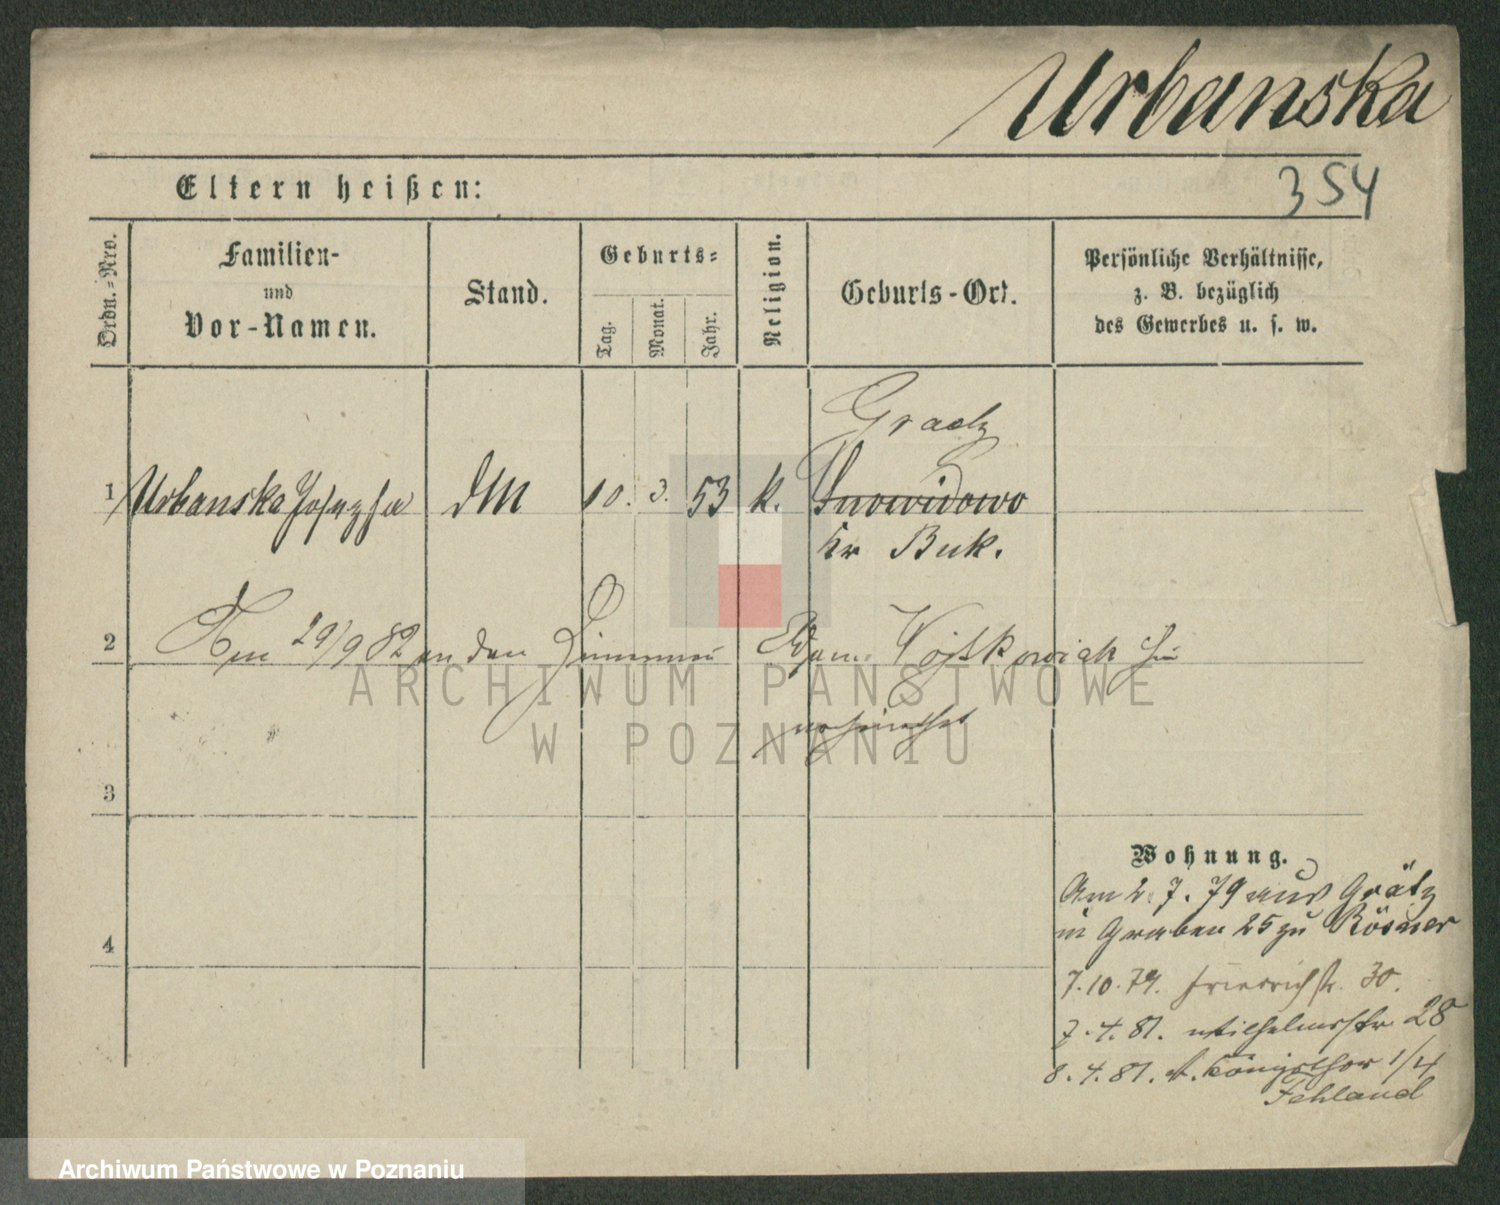 Urbanska
354
Eltern heißen:
Ordn.=Nro.
Familien-
und
Vor-Namen.
Stand.
Geburts=
Tag.
Monat.
Jahr.
Religion.
Geburts-Ort.
Persönliche Verhältnisse,
z. B. bezüglich
des Gewerbes u. s. w.
Graetz
1 Urbanska Josepha dM 10. 3. 53 k. Snowidowo
Kr Buk.
2 Am 29/9 82 an den Adam Wojtkowiak hier
verheirathet
3
4
Wohnung.
Am 2. 7. 79 aus Grätz
in Graben 25 zu Rösner
7. 10. 79. Friedrichstr. 30.
7. 4. 81. Wilhelmsstr 28
8. 4. 81. Königsthor 1/4
Fehland
ARCHIWUM PAŃSTWOWE
W POZNANIU
Archiwum Państwowe w Poznaniu